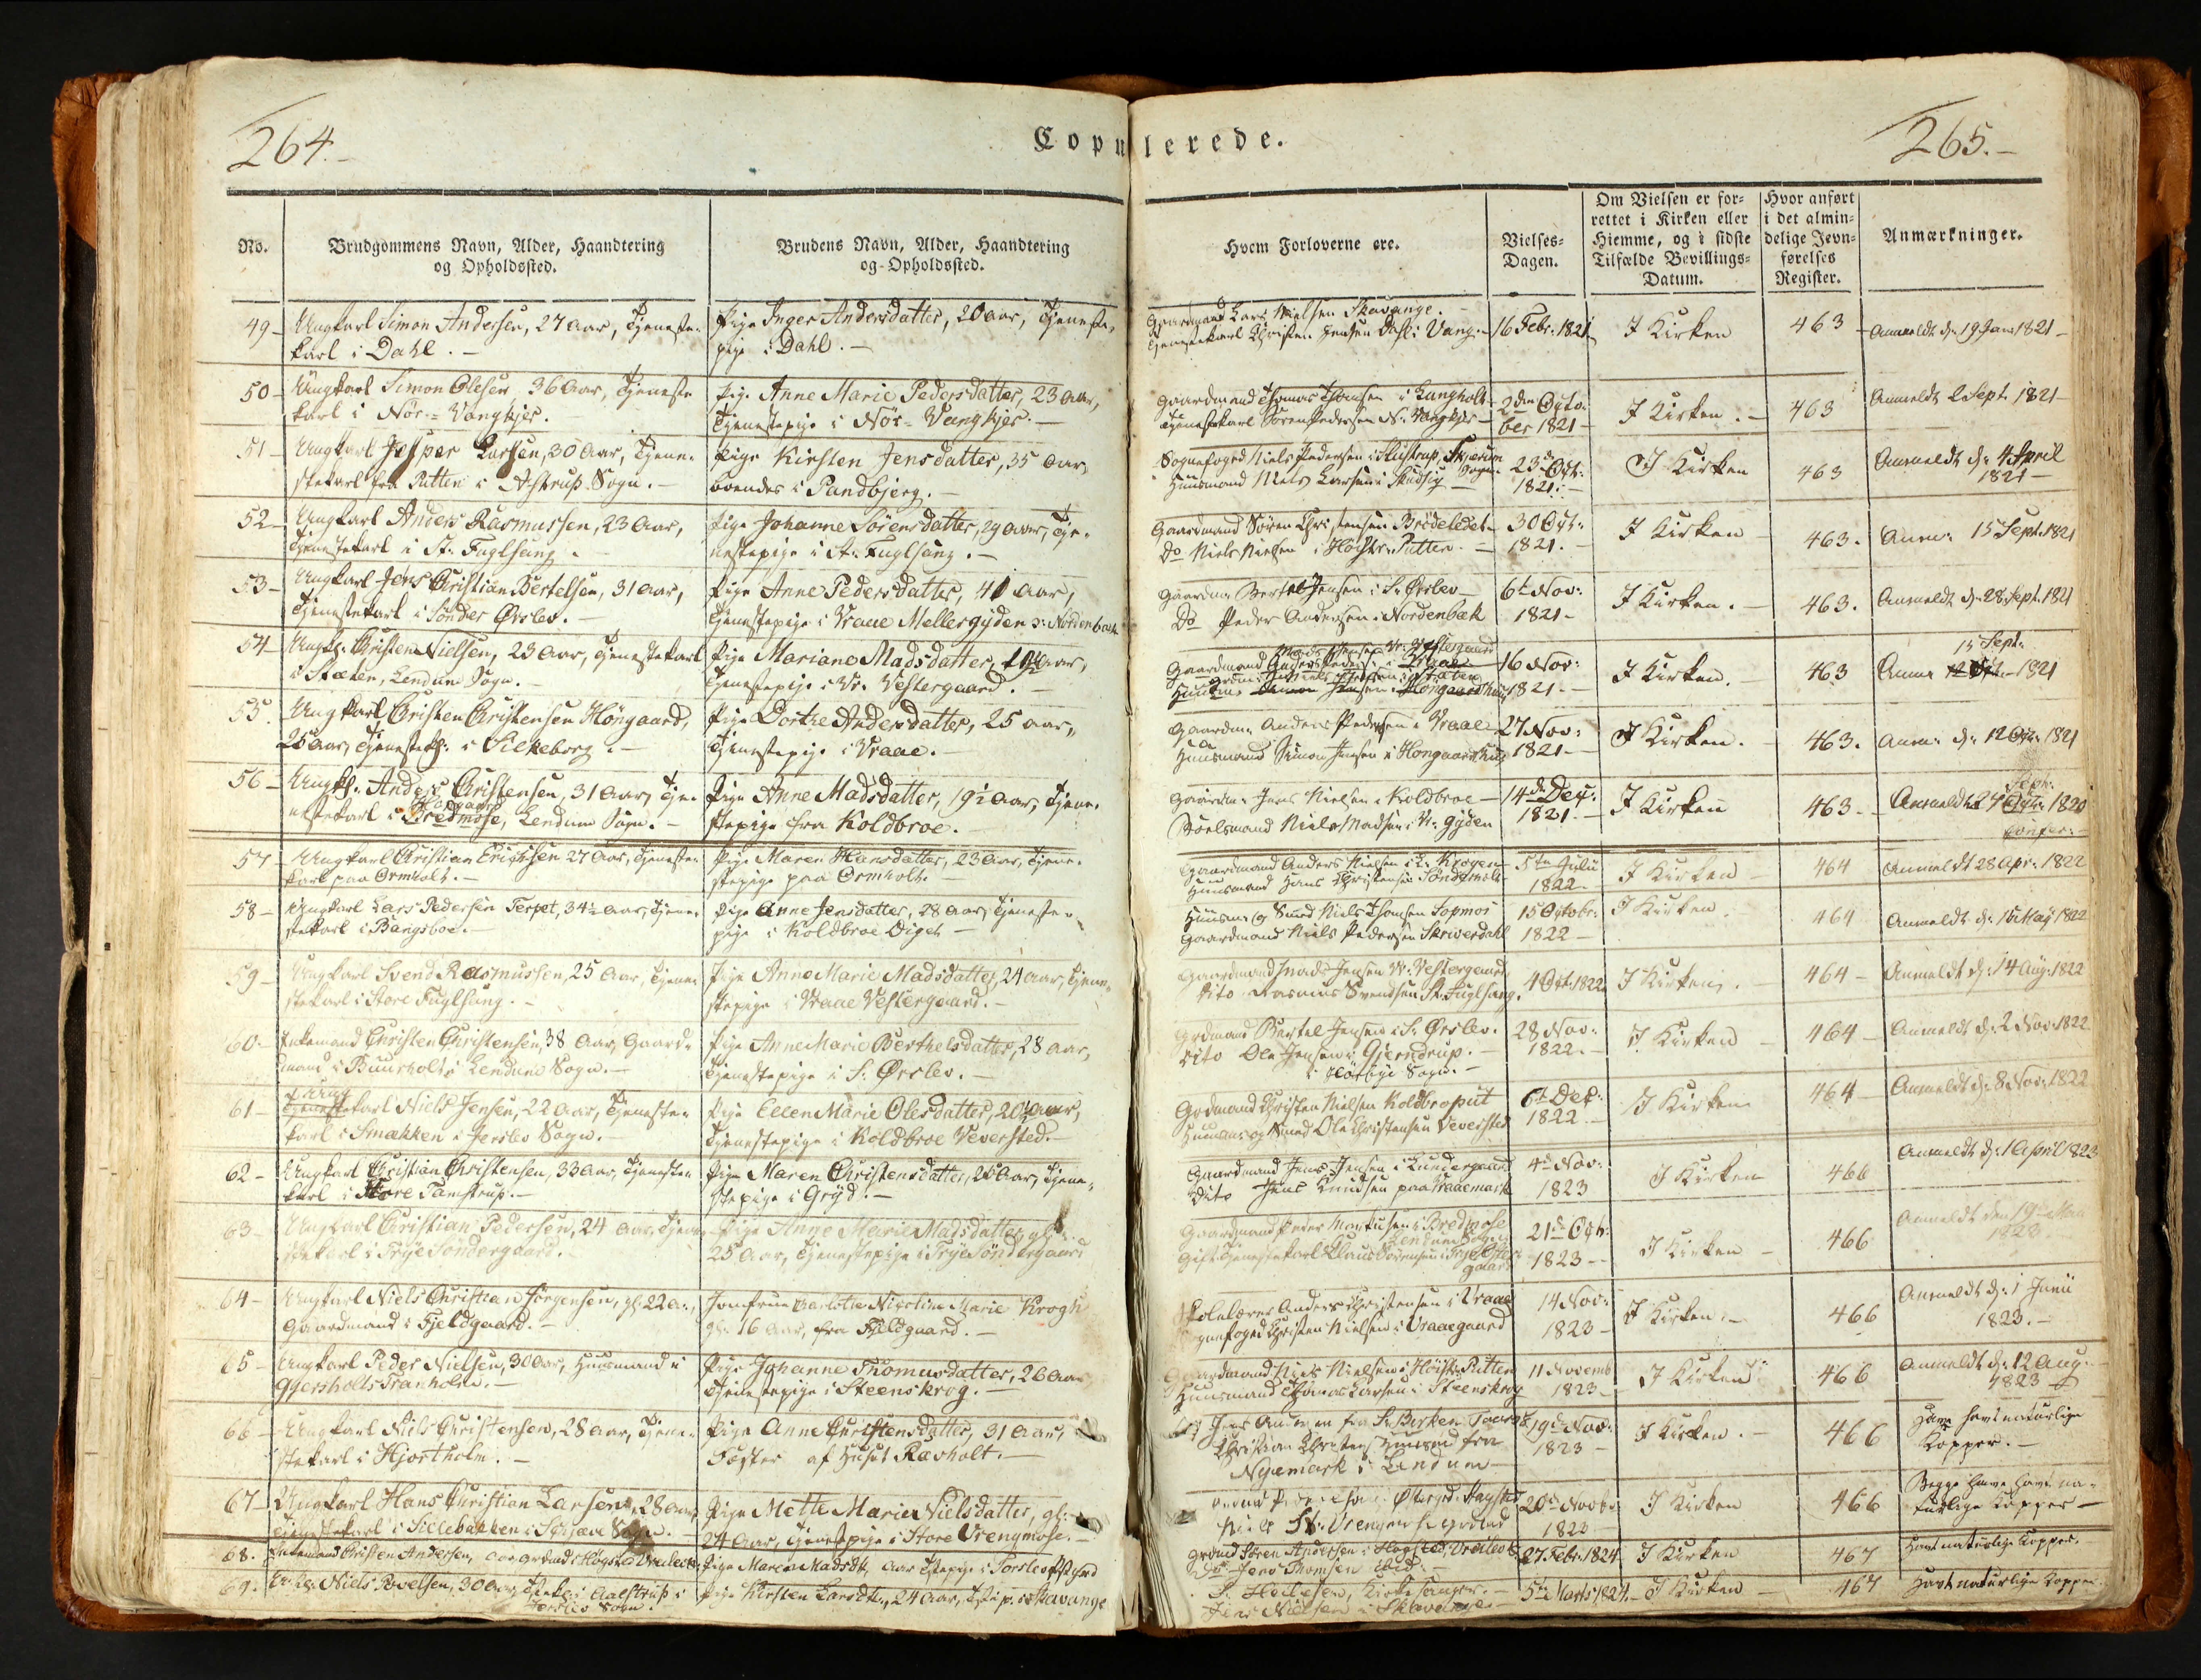 264.-
Copulerede.
265.-
No.
Brudgommens Navn, Alder, Haandtering
og Opholdssted.
Brudens Navn, Alder, Haandtering
og Opholdssted.
Hvem Forloverne ere.
Vielses-
Dagen.
Om Vielsen er for-
rettet i Kirken eller
Hiemme, og i sidste
Tilfælde Bevillings-
Datum.
Hvor anført
i det almin-
delige Jevn-
førelses
Register.
Anmærkninger.
49 - Ungkarl Simon Andersen, 27 Aar, Tjeneste-
karl i Dahl. -
Pige Inger Andersdatter, 20 Aar, Tjeneste-
pige i Dahl. -
Gaardmand Lars Nielsen Skavange.
Tjenestekarl Christen Jensen Dahl i Vang. -
16 Febr: 1821
I Kirken
463
Anmeldt d: 19 Jan: 1821 -
50 - Ungkarl Simon Olesen, 36 Aar, Tjeneste
karl i Nör-Vangkjer.
Pige Anne Marie Pedersdatter, 23 Aar,
Tjenestepige i Nör-Vangkjer. -
Gaardmand Thomas Thomsen i Langholt
Tjenestekarl Sören Pedersen N. Vangkjer -
2den Octo-
ber 1821 -
I Kirken. -
463
Anmeldt 2 Sept. 1821 -
51 - Ungkarl Jesper Larsen, 30 Aar, Tjene-
stekarl fra Rötten i Astrup Sogn. -
Pige Kirsten Jensdatter, 35 Aar,
boendes i Pandbjerg. -
Sognefoged Niels Pedersen i Skistrup, Skjærum
Sogn.
Huusmand Niels Larsen i -
23d Oct:
1821. -
I Kirken
463
Anmeldt d: 4 April
1821 -
52 - Ungkarl Anders Rasmussen, 23 Aar,
Tjenestekarl i St. Fuglsang.
Pige Johanne Sörensdatter, 29 Aar, Tje-
nestepige i St. Fuglsang. -
Gaardmand Sören Christensen Brödeledet
Do Niels Nielsen i Höistr. Rutten. -
30 Oct:
1821. -
I Kirken
463.
Anm: 15 Sept. 1821
53 - Ungkarl Jens Christian Bertelsen, 31 Aar,
Tjenestekarl i Sönder Ørslev. -
Pige Anne Pedersdatter, 41 Aar,
Tjenestepige i Vraae Mellergyden o: Nordenbæk
Gaardm: Bertel Jensen i S. Ørslev -
Do Peder Andersen i Nordenbæk
6te Nov:
1821 -
I Kirken. -
463.
Anmeldt d: 28 Sept. 1821
54 - Ungk: Christen Nielsen, 23 Aar, Tjenestekarl
i Stæten, Lendum Sogn. -
Pige Mariane Madsdatter, Aar,
Tjenestepige i Vr. Vestergaard. -
Mads Jensen Vr: Vestergaard
Gaardmand Anders Pedersen i Vraae
Huusm: Simon Jensen i Höngaardhuus
16 Nov:
1821. -
I Kirken.
463
15 Sept:
Anm: 1821
55. Ungkarl Christen Christensen Höngaard,
25 Aar, Tjenestek: i Silkeborg. -
Pige Dorthe Andersdatter, 25 Aar,
Tjenestepige i Vraae. -
Gaardm: Anders Pedersen i Vraae
Huusmand Simon Jensen i Hongaardhuus
27 Nov:
1821 -
I Kirken. -
463.
Anm: d: 12 Oct: 1821
56 - Ungk: Anders Christensen, 31 Aar, Tje-
nestekarl i Bredmose, Lendum Sogn. -
Pige Anne Madsdatter, 19½ Aar, Tjene-
stepige fra Koldbroe. -
Gaardm: Jens Nielsen i Koldbroe -
Boelsmand Niels Madsen i N: Gyden
14de Dec:
1821. -
I Kirken
463. -
Sept:
Anmeldt 24 1820
57 - Ungkarl Christian Erichsen 27 Aar, Tjeneste-
karl paa Ormholt. -
Pige Maren Hansdatter, 23 Aar, Tjene-
stepige paa Ormholt.
Gaardmand Anders Nielsen i L. Krogen
Huusmand Hans Christensen Söndermölle
5te Julii
1822 -
I Kirken -
464
Anmeldt 28 Apr: 1822
58 - Ungkarl Lars Pedersen Terpet, 34½ Aar, Tjene-
stekarl i Bangsboe. -
Pige Anne Jensdatter, 28 Aar, Tjeneste-
pige i Koldbroe Diget -
Huusm: og Smed Niels Thomsen Sopmos
Gaardmand Niels Pedersen Skriverdahl
15 Octobr:
1822 -
I Kirken.
464
Anmeldt d: 15 May 1822
59 - Ungkarl Svend Rasmussen, 25 Aar, Tjene-
stekarl i Store Fuglsang. -
Pige Anne Marie Madsdatter, 24 Aar, Tjene-
stepige i Vraae Vestergaard. -
Gaardmand Mads Jensen Vr: Vestergaard
dito Rasmus Svendsen St. Fuglsang.
4 Oct. 1822
I Kirken.
464 -
Anmeldt d: 14 Aug: 1822
60 - Enkemand Christen Christensen, 38 Aar, Gaard-
mand i Buurholt i Lendum Sogn. -
Pige Anne Marie Berthelsdatter, 28 Aar,
Tjenestepige i S. Ørslev. -
Grdmand Bertel Jensen i S. Ørslev.
dito Ole Jensen i Gjerndrup. -
i Sogn. -
28 Nov:
1822. -
I Kirken -
464
Anmeldt d: 2 Nov: 1822
61 - Ungkarl Niels Jensen, 22 Aar, Tjeneste-
karl i Smækken i Jerslev Sogn. -
Pige Ellen Marie Olesdatter, 20½ Aar,
Tjenestepige i Koldbroe Veversted. -
Grdmand Christen Nielsen Koldbroput
Huusm: og Smed Ole Christensen Veversted
6te Dec:
1822 -
I Kirken
464
Anmeldt d: 8 Nov: 1822
62 - Ungkarl Christian Christensen, 33 Aar, Tjeneste-
karl i Store Tamstrup. -
Pige Maren Christensdatter, 25 Aar, Tjene-
stepige i Gryd. -
Gaardmand Jens Jensen i Lundergaard
Dito Jens Knudsen paa Vraaemark
4de Nov:
1823
I Kirken
466
Anmeldt d: 1 April 1823
63 - Ungkarl Christian Pedersen, 24 Aar, Tjene-
stekarl i Trye Söndergaard. -
Pige Anne Marie Madsdatter, gl:
25 Aar, Tjenestepige i Trye Söndergaard
Gaardmand Peter Markusen i Bredmose
Lendum Sogn.
Gift Tjenestekarl Klaus Sörensen i Trye
gaard
21de Oct:
1823 -
I Kirken -
466
Anmeldt den 19de Mai
1823
64 - Ungkarl Niels Christian Jörgensen, gl: 22 A.,
Gaardmand i Fjeldgaard. -
Jomfrue Charlotte Nicoline Marie Krogh
gl: 16 Aar, fra Fjeldgaard. -
Skolelærer Anders Christensen i Vraae
Sognefoged Christen Nielsen i Vraaegaard
14 Nov:
1823 -
I Kirken. -
466
Anmeldt d: 1 Junii
1823. -
65 - Ungkarl Peder Nielsen, 30 Aar, Huusmand i
Gyersholts Tranholm. -
Pige Johanne Thomasdatter, 26 Aar
Tjenestepige i Steenskrog. -
Gaardmand Niels Nielsen i Höistr. Rutten
Huusmand Thomas Larsen i Steenskrog
11 Novemb
1823 -
I Kirken
466
Anmeldt d: 12 Aug.
1823
66 - Ungkarl Niels Christensen, 28 Aar, Tjene-
stekarl i Hjortholm. -
Pige Anne Christensdatter, 31 Aar,
Fæster af Huset Ravholt. -
Jens Andersen fra St. Birken Taars
Christian Christens Huusmd fra
Nyemark i Lendum
19de Nov:
1823 -
I Kirken. -
466
Have havt naturlige
Kopper. -
67 - Ungkarl Hans Christian Larsen, 28 Aar
Tjenestekarl i Sillebakken i Sogn. -
Pige Mette Marie Nielsdatter, gl:
24 Aar, Tjenestepige i Store Vrengmose. -
Niels St: Vrengmose Grdmd
20de Novbr:
1823
I Kirken
466
Begge have havt na-
turlige Kopper -
68. Enkemand Christen Andersen, Aar Grdmd i Høgsted Vreilev
Pige Maren Madsdt, Aar Tjpige i Torslev
Grdmd Sören Andersen i Høgsted Vreilev
Do Jens Thomsen ibid: -
27 Febr: 1824
I Kirken
467
Havt naturlige Kopper.
69. Niels Povelsen, 30 Aar, i Aalstrup i
Jerslev Sogn.
Pige Kirsten Larsdtr., 24 Aar, Tjp. i Skavange
Kirkesanger. -
Jens Nielsen i Skavange -
5te Marts 1824. -
I Kirken
467
Havt naturlige Kopper.